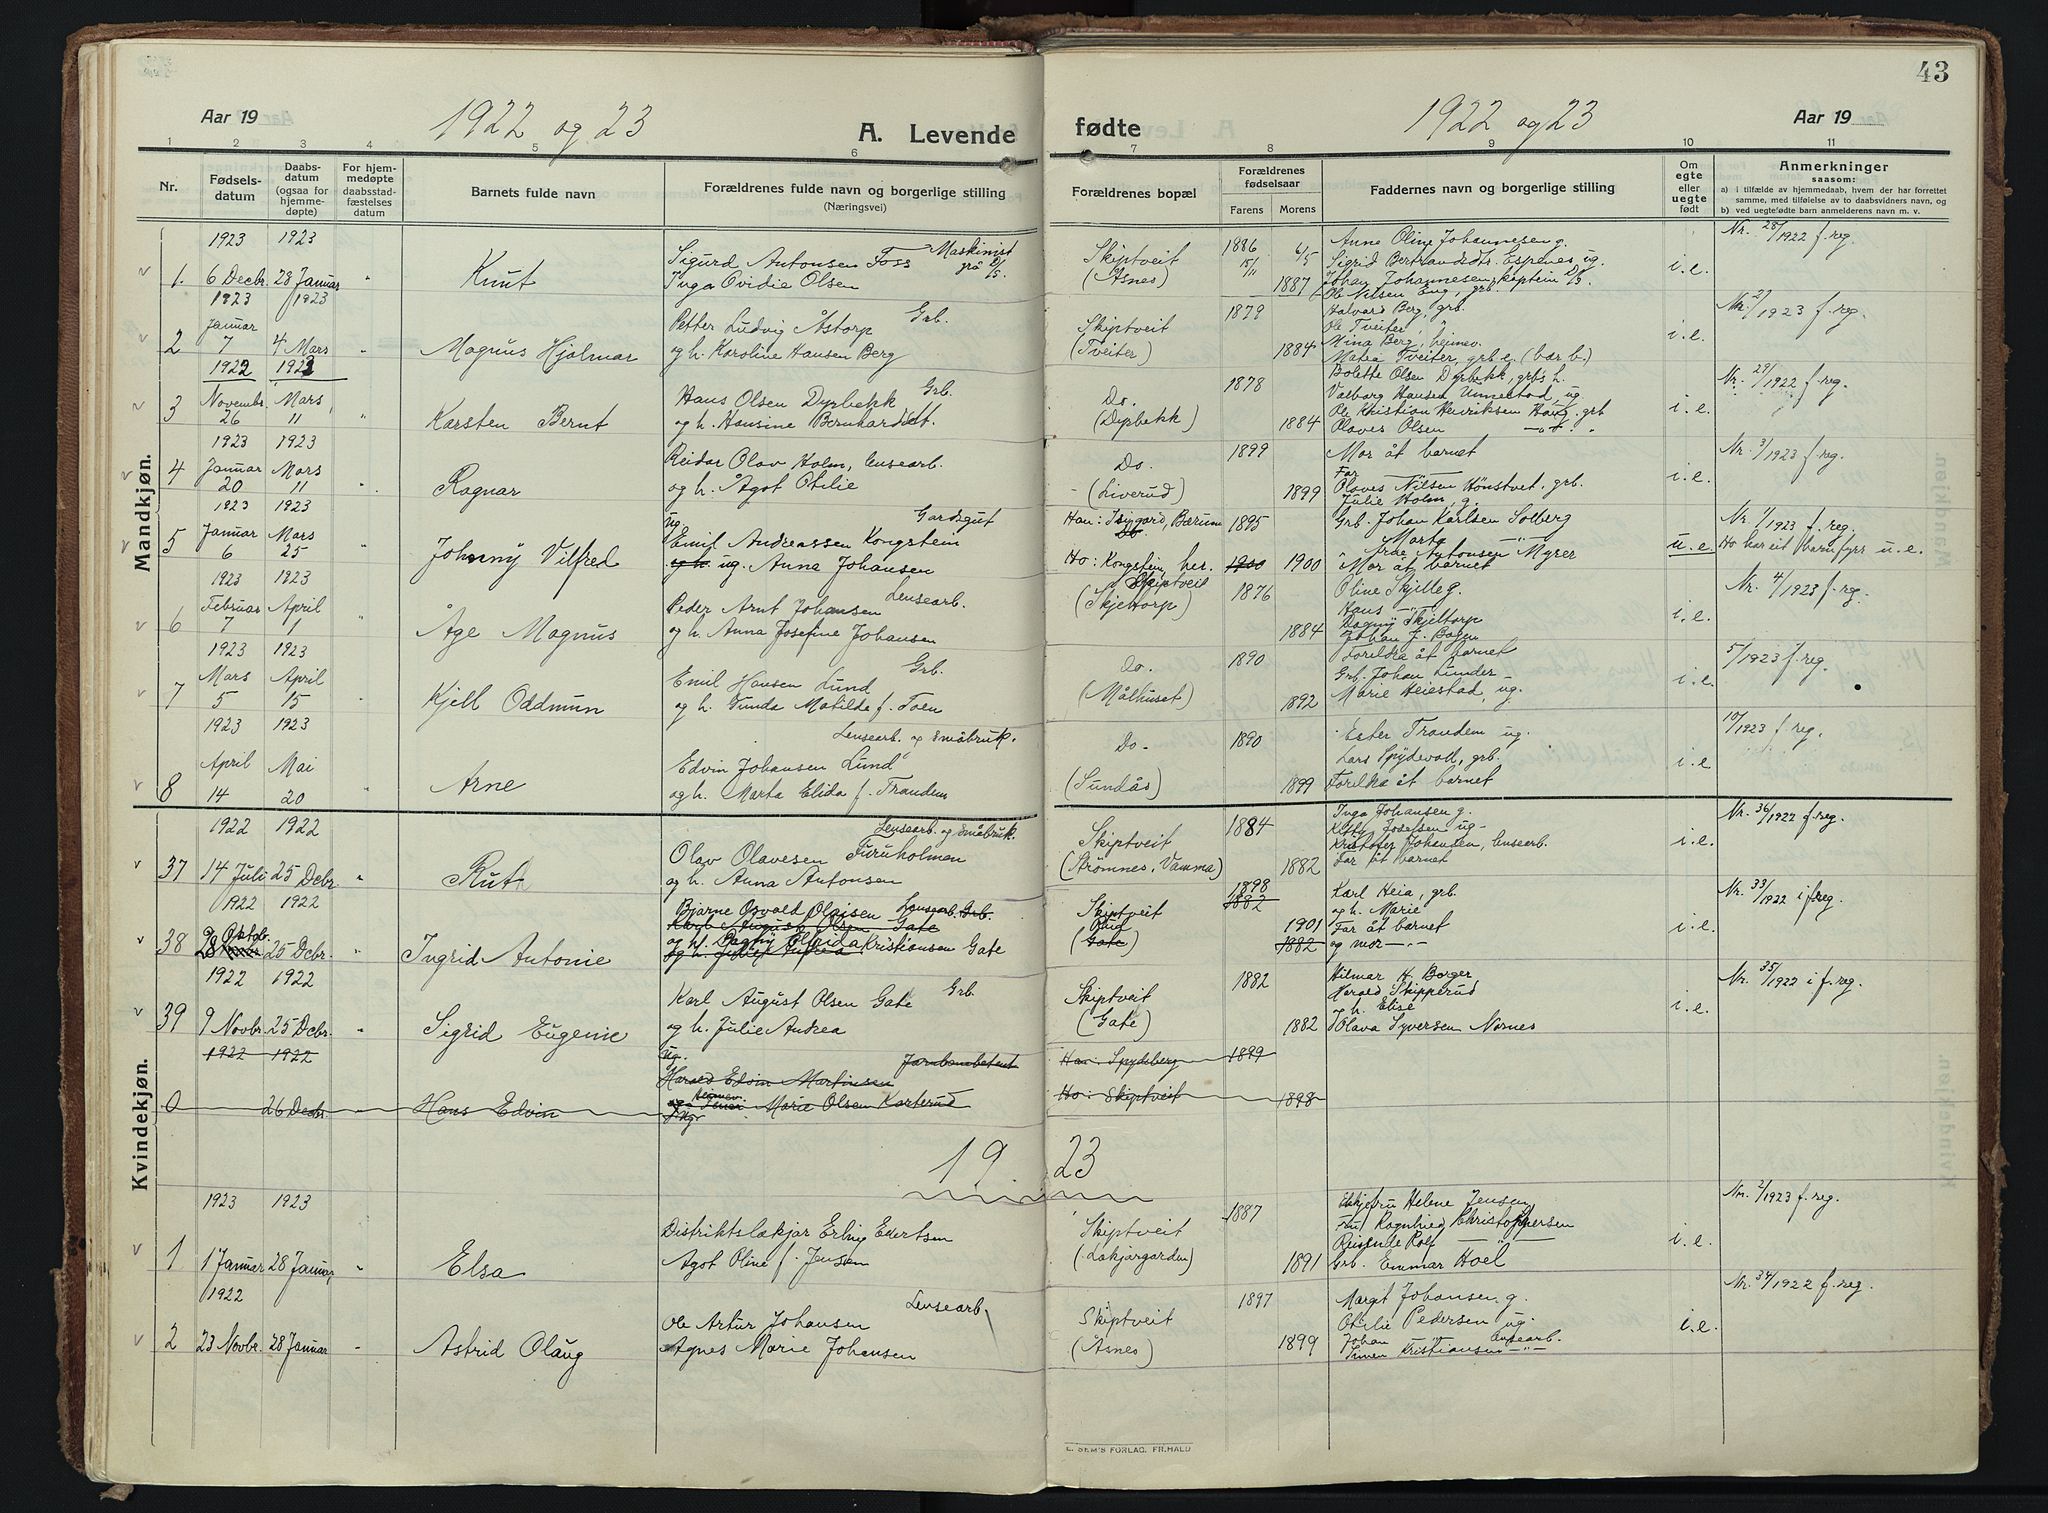 43
Aar 19
1922 og 23
A. Levende
fødte
1922 og 23
Aar 19
1 2 3 4 5 6 7 8 9 10 11
Nr.
Fødsels-
datum
Daabs-
datum
(ogsaa for
hjemme-
døpte)
For hjem-
medøpte
daabsstad-
fæstelses
datum
Barnets fulde navn
Forældrenes fulde navn og borgerlige stilling
(Næringsvei)
Forældrenes bopæl
Forældrenes
fødselsaar
Farens Morens
Faddernes navn og borgerlige stilling
Om
egte
eller
uegte
født
Anmerkninger
saasom:
a) i tilfælde av hjemmedaab, hvem der har forrettet
samme, med tilføielse av to daabsvidners navn, og
b) ved uegtefødte barn anmelderens navn m. v.
Mandkjøn.
1923 1923
1. 6 Decbr. 28 Januar " Knut
Sigurd Antonsen Foss Maskinist på D/S.
Inga Ovidie Olsen
Skiptveit
(Åsnes)
1886 15/11
6/5 1887
Anne Oline Johannesen g.
Sigrid Bertrandsdtr. Espenes ug.
Johan Johannesen, skiptein D/S.
Ole Nilsen Eng, grb.
i.e.
Nr. 28/1922 f. reg.
1923 1923
Januar
2 7 4 Mars " Magnus Hjalmar
Petter Ludvig Åstorp Grb.
og h. Karoline Hansen Berg
Skiptveit
(Tveiter)
1879
1884
Halvard Berg, grb.
Ole Tveiter, "
Mina Berg, heimev.
Matea Tveiter, grb. e. (bar b.)
i.e.
Nr. 27/1923 f. reg.
1922 1923
Novembr. Mars
3 26 11 " Karsten Bernt
Hans Olsen Dyrbekk Grb.
og h. Hansine Bernhardsdt.
Do.
(Dyrbekk)
1878
1884
Bolette Olsen Dyrbekk, grb's h.
Valborg Hansen Unnestad, ug.
Ole Kristian Henriksen Haug, grb
Olaves Olsen —"—
i.e.
Nr. 29/1922 f. reg.
1923 1923
Januar Mars
4 20 11 " Ragnar
Reidar Olav Holm, lensearb.
og h. Agot Otilie
Do.
(Liverud)
1899
1899
Mor åt barnet
Far
Olaves Nilsen Hønstvet, grb.
Julie Holm, g.
i.e.
Nr. 3/1923 f. reg.
1923 1923
Januar Mars
5 6 25 " Johnny Vilfred
ug. Gardsgut
Emil Andreassen Kongstein
og h. ug. Anna Johansen
Han: Isygard, Bærum
Ho: Kongstein, her.
1895
1900 1900
Grb. Johan Karlsen Solberg
Marta
Arne Antonsen Myrer
Mor åt barnet
u.e.
Nr. 1/1923 f. reg.
Ho har eit barn fyrr u.e.
1923 1923
Februar April
6 7 1 " Åge Magnus
Peder Arnt Johansen Lensearb.
og h. Anna Josefine Johansen
Skiptveit
(Skjeltorp)
1876
1884
Oline Skjille g.
Hans —"—
Dagny Skjeltorp
Johan J. Bogen
i.e.
Nr. 4/1923 f. reg.
1923 1923
Mars April
7 5 15 " Kjell Oddmun
Emil Hansen Lund Grb.
og h. Gunda Matilde f. Toen
Do.
(Målhuset)
1890
1892
Foreldra åt barnet
Grb. Johan Lunder
Marie Heiestad, ug.
i.e.
5/1923 f. reg.
1923 1923
April Mai
8 14 20 " Arne
Lensearb. og småbruk.
Edvin Johansen Lund
og h. Marta Elida f. Trandem
Do.
(Sundås)
1890
1899
Ester Trandem ug.
Lars Spydevold, grb.
Foreldra åt barnet
i.e
10/1923 f. reg.
Kvindekjøn.
1922 1922
37 14 Juli 25 Decbr. " Rut
Lensearb. og småbruk.
Olav Olavesen Furuholmen
og h. Anna Antonsen
Skiptveit
(Strømnes, Vamma)
1884
1882
Inga Johansen g.
Kitty Josefsen ug-
Kristofer Johansen, lensearb.
Far åt barnet
i.e.
Nr. 36/1922 f. reg.
1922 1922
38 Oktob. 25 Dcbr. " Ingrid Antonie
Bjarne Osvald Olaisen Lensearb. Grb.
Karl August Olsen Gate
og h. Dagny Elvida Kristiansen Gate
og h. Julie Andrea
Skiptveit
(Gate)
1898
1882
1901
1882
Karl Heia, grb.
og h. Marie
Far åt barnet
og mor —"—
i.e.
Nr. 33/1922 i f. reg.
1922 1922
39 9 Novbr. 25 Dcbr. " Sigrid Eugenie
Karl August Olsen Gate Grb.
og h. Julie Andrea
Skiptveit
(Gate)
1882
1882
Hilmar H. Borger
Harald Skipperud
h. Elise
Olava Syversen Nornes
i.e.
Nr. 35/1922 i f. reg.
1922 1922
0 26 Decbr. Hans Edvin
ug. Jarnbanebetent
Harald Edvin Martinsen
Marie Olsen Karterud
Han: Spydeberg
Ho: Skiptveit
1899
1898
1923
1923 1923
1 1 Januar 28 Januar " Elsa
Distriktslækjar Erling Evertsen
Agot Oline f. Jensen
Skiptveit
(Lækjargarden)
1887
1891
Enkjefru Helene Jensen
Fru Ragnhild Christophersen
Reisende Rolf —"—
Grb. Emmar Hoel
i.e.
Nr. 2/1923 f. reg.
1922
2 23 Novbr. 28 Januar - Astrid Olaug
Lensearb.
Ole Artur Johansen
Agnes Marie Johansen
Skiptveit
(Åsnes)
1897
1899
Margit Johansen, g.
Otilie Pedersen ug.
Johan lensearb.
Simen Kristiansen —"—
i.e.
Nr. 34/1922 f. reg.
E. SEM'S FORLAG, FR.HALD